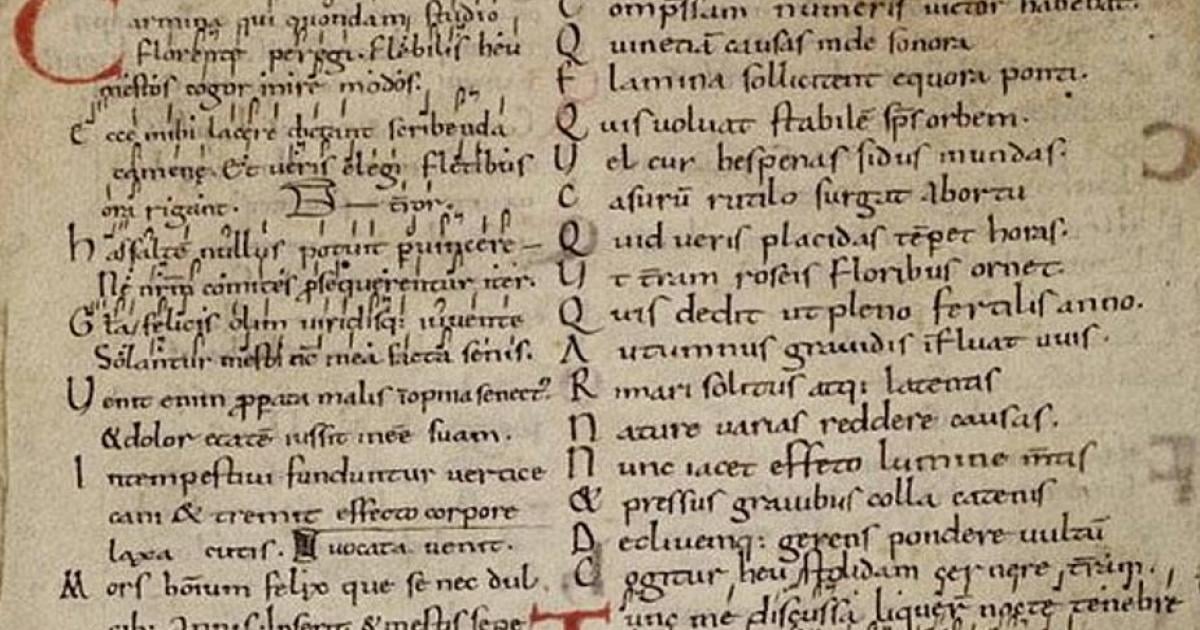 Carmina qui quondam studio
florente peregi. flebilis heu
mestos cogor inire modos.
Ecce mihi lacere dictant scribenda
camene. Et ueris elegi fletibus
ora rigant.
has saltē nullus potuit puincere
Ne nr̄m comites ꝓsequerentur iter.
Gl̄a felicis olim uiridisq: iuuente
Solantur mesti nc̄ mea facta senis.
Uenit enim ꝓpata malis īopina senect᾽
&dolor etatē iussit inēē suam.
Intempestiui funduntur uertice
cani & tremit effeto corpore
laxa cutis. uocata uenit.
Mors hōium felix que se nec dul
cibi annis inserit &mestis sepe
Compssam numeris uictor habebat.
Quinetiā causas unde sonora
Flamina sollicitent equora ponti.
Quis uoluat stabilē sp̄s orbem.
Uel cur hesperias sidus in undas.
Casurū rutilo surgat Abortu
Quid ueris placidas tēpet horas.
Ut t̄ram roseis floribus ornet.
Quis dedit ut pleno fertilis anno.
Autumnus grauidis īfluat uuis.
Rimari solitus atq: latentis
Nature uarias reddere causas.
Nunc iacet effeto lumine m̄tis
& pressus grauibus colla catenis
Decliuemq: gerens pondere uultū
Cogitur heu stolidam cernere t̄ram.
Tunc me discussa liquer̄ nocte tenebre